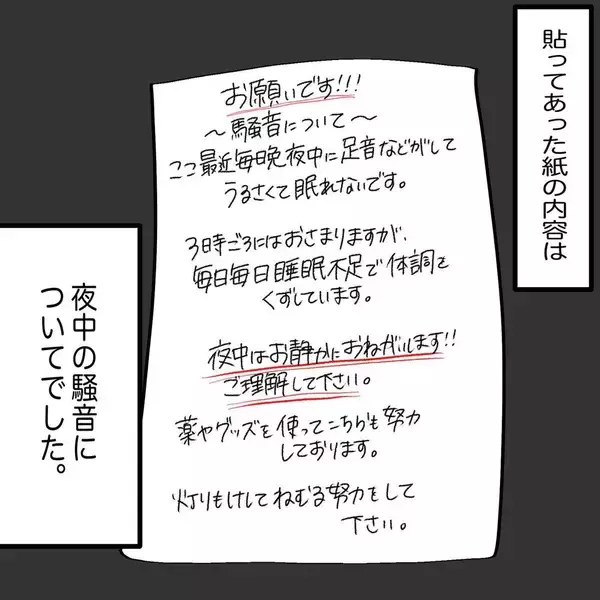 貼ってあった紙の内容は
お願いです!!!
〜騒音について〜
ここ最近毎晩夜中に足音などがして
うるさくて眠れないです。
3時ごろにはおさまりますが、
毎日毎日睡眠不足で体調を
くずしています。
夜中はお静かにおねがいします!!
ご理解して下さい。
薬やグッズを使ってこちらも努力
しております。
灯りもけしてねむる努力をして
下さい。
夜中の騒音に
ついてでした。